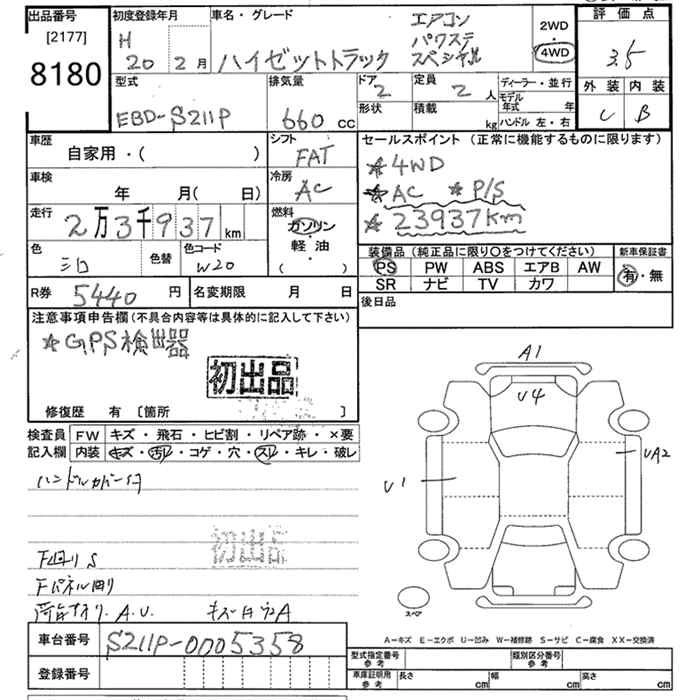 出品番号
[2177]
8180
初度登録年月
H
20 2月
車名・グレード
ハイゼットトラック
エアコン
パワステ
スペシャル
2WD
・
4WD
評価点
3.5
外装 内装
C B
型式
EBD-S211P
排気量
660 cc
ドア
2
定員
2 人
ディーラー・並行
モデル年式 年
形状
積載 kg
ハンドル 左・右
車歴
自家用・( )
シフト
FAT
セールスポイント (正常に機能するものに限ります)
☆4WD
☆AC ☆P/S
☆23937Km
車検
年 月( 日)
冷房
AC
走行
2万3千937 km
燃料
ガソリン
・
軽油
( )
色
シロ
色替
色コード
W20
装備品 (純正品に限り○をつけてください)
PS PW ABS エアB AW
SR ナビ TV カワ
新車保証書
有・無
R券 5440 円
名変期限 月 日
後日品
注意事項申告欄(不具合内容等は具体的に記入して下さい)
☆GPS検出器
初出品
修復歴 有 [箇所 ]
検査員 FW キズ・飛石・ヒビ割・リペア跡・×要
記入欄 内装 キズ・汚レ・コゲ・穴・スレ・キレ・破レ
ハンドルカバー付
初出品
下回りS
A1
U4
U1
UA2
スペア
A-キズ E-エクボ U-凹み W-補修跡 S-サビ C-腐食 XX-交換済
車台番号 S211P-0005358
登録番号
型式指定番号
参考
類別区分番号
参考
車庫証明用
参考
長さ cm
幅 cm
高さ cm